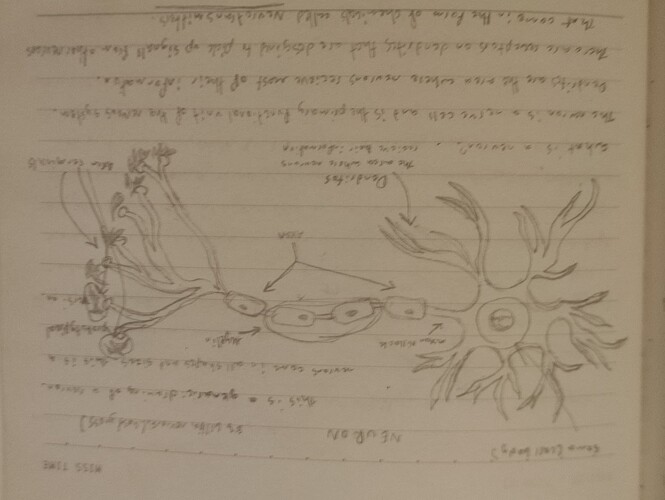 MISS TIME
NEURON
Soma (cell body)?
86 billion neurons (and types)
This is a generic drawing of a neuron.
neurons come in all shapes and sizes, this is a
axon hillock
Myelin
Axon
Dendrites
The area where neurons
recieve their information
Axon terminals
What is a neuron?
The neuron is a nerve cell and is the primary functional unit of the nervous system.
Dendrites are the area where neurons recieve most of their information.
There are receptors on dendrites, that are designed to pick up signals from other neurons
That come in the form of chemicals called Neurotransmitters.